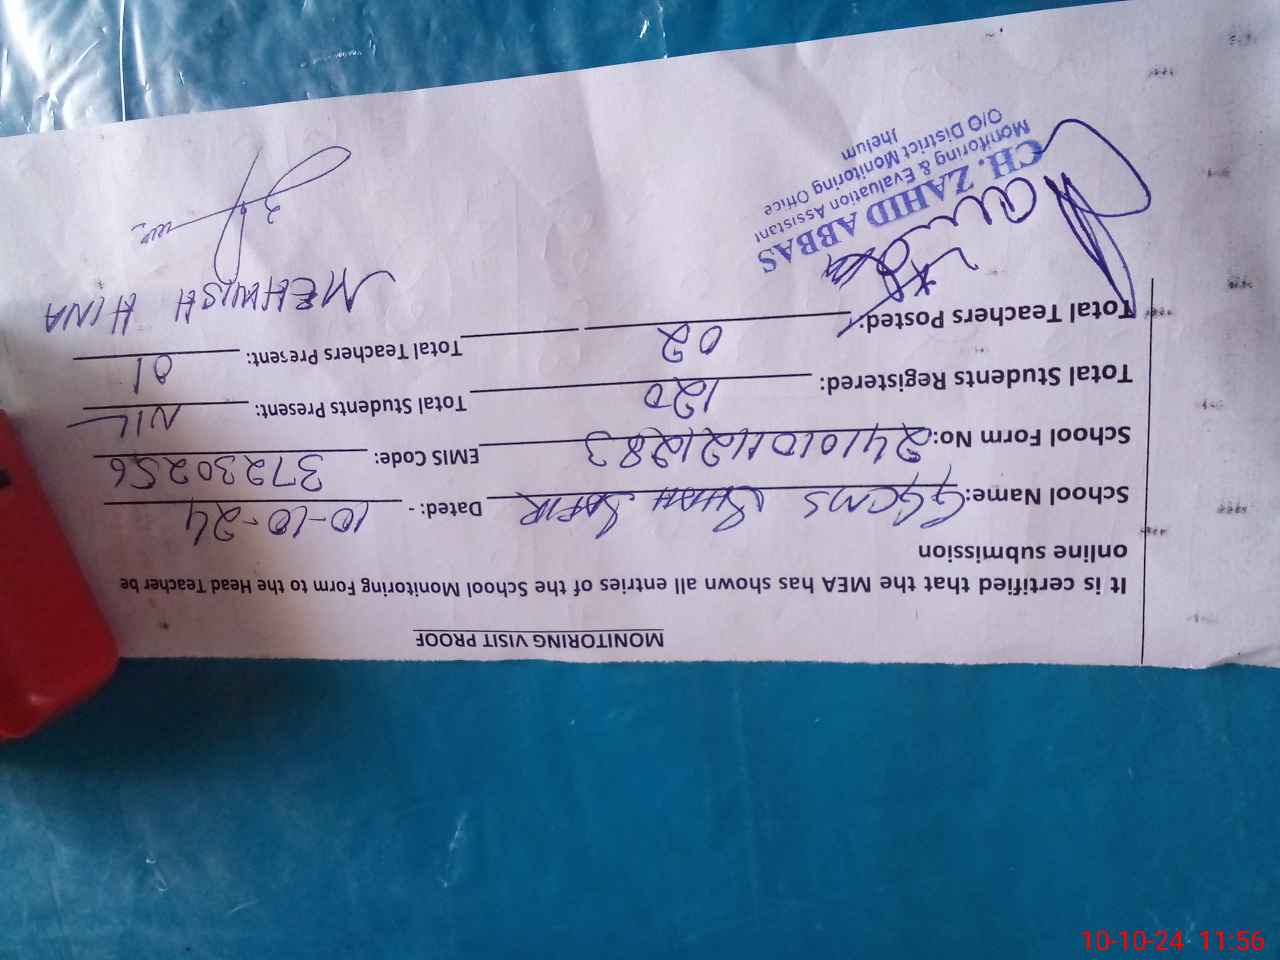 MONITORING VISIT PROOF
It is certified that the MEA has shown all entries of the School Monitoring Form to the Head Teacher be
online submission
School Name: GGCMS SHAH SAFIR Dated: - 10-10-24
School Form No: 241010112121283 EMIS Code: 37230256
Total Students Registered: 120 Total Students Present: NIL
Total Teachers Posted: 02 Total Teachers Present: 01
MEHWISH HINA
CH. ZAHID ABBAS
Monitoring & Evaluation Assistant
O/O District Monitoring Office
Jhelum
10-10-24 11:56